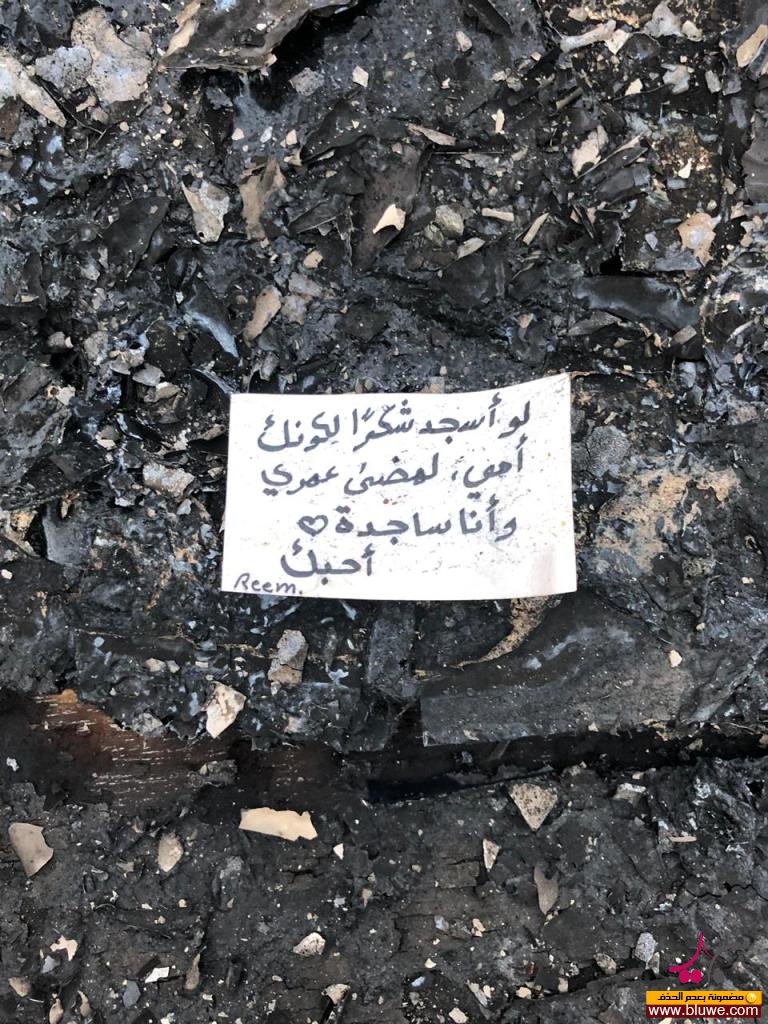 لو أسجد شكرًا لكونك
أمي، لمضى عمري
وأنا ساجدة ♡
أحبك
Reem.
مضمونة بعدم الحذف
www.bluwe.com